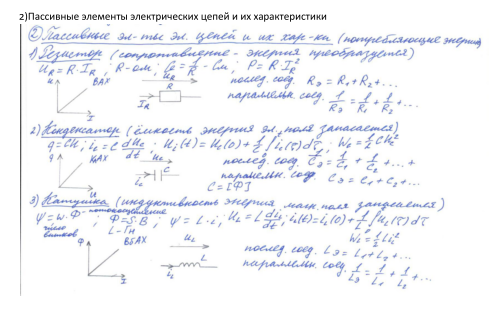 2)Пассивные элементы электрических цепей и их характеристики
② Пассивные эл-ты эл. цепей и их хар-ки (потребляющие энергию)
1) Резистор (сопротивление - энергия преобразуется)
U_R = R·I_R, R-ом; G=1/R - См; P = R·I_R²
U ВАХ I
U_R R I_R
послед. соед. Rэ = R₁+R₂+...
параллельн. соед. 1/Rэ = 1/R₁ + 1/R₂ + ...
2) Конденсатор (ёмкость энергия эл. поля запасается)
q = CU; i_c = C dU_c/dt
q КВАХ U
U_c i_c C
послед. соед. 1/Cэ = 1/C₁ + 1/C₂ + ...
параллельн. соед. Cэ = C₁+C₂+...
C = [Ф]
3) Катушка (индуктивность энергия магн. поля запасается)
Ψ = W·Ф - потокосцепление; Ф=S·B; Ψ = L·i; U_L = L di_L/dt
число витков
L-Гн
Ф ВБАХ i
U_L i_L L
послед. соед. Lэ = L₁+L₂+...
параллельн. соед. 1/Lэ = 1/L₁ + 1/L₂ + ...